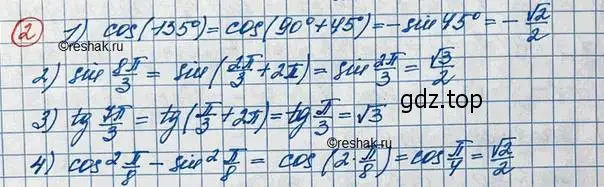 ② 1) cos(135°) = cos(90°+45°) = -sin 45° = -√2/2
©reshak.ru
2) sin 8π/3 = sin(2π/3 + 2π) = sin 2π/3 = √3/2
3) tg 7π/3 = tg(π/3 + 2π) = tg π/3 = √3
gdz.top
©reshak.ru
4) cos² π/8 - sin² π/8 = cos(2·π/8) = cos π/4 = √2/2